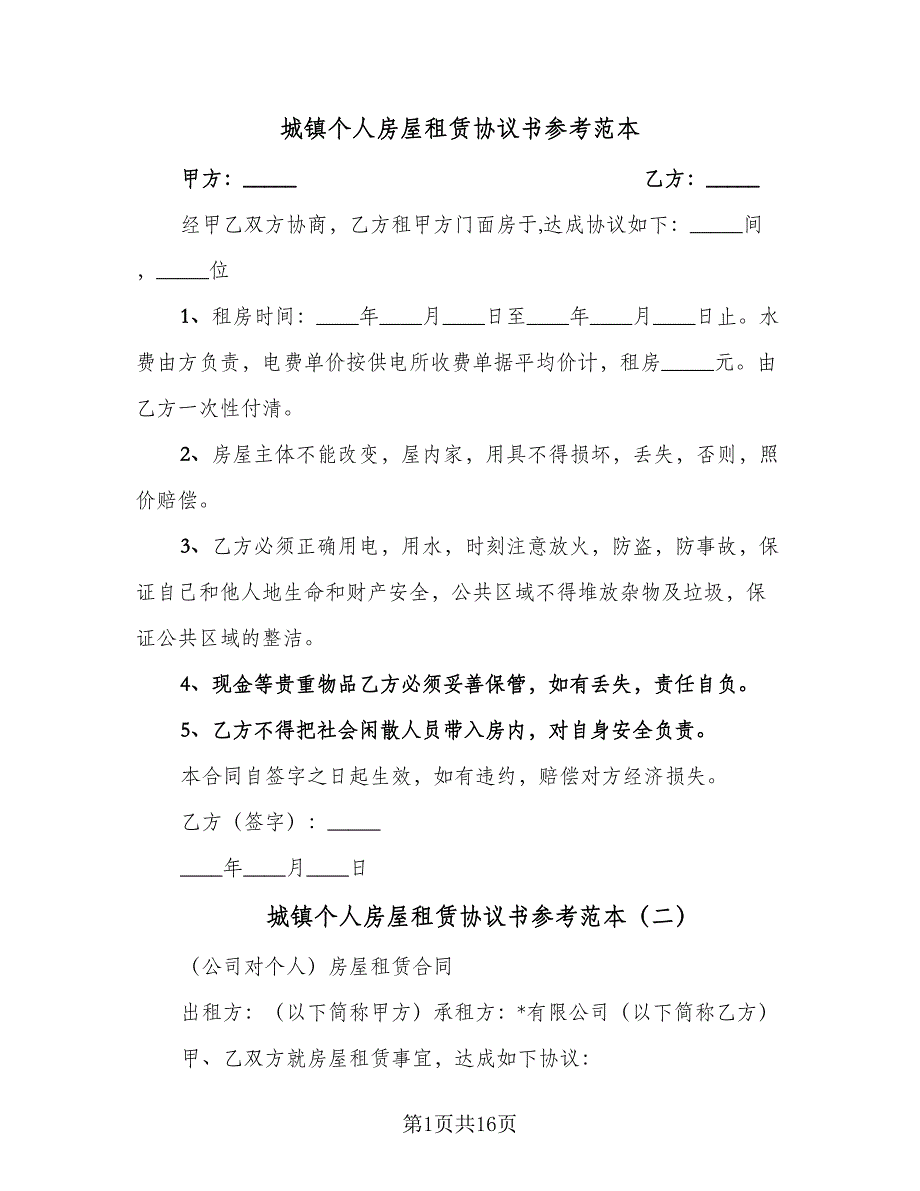 城镇个人房屋租赁协议书参考范本
甲方：_____ 乙方：_____
经甲乙双方协商，乙方租甲方门面房于,达成协议如下：_____间
，_____位
1、租房时间：____年____月____日至____年____月____日止。水
费由方负责，电费单价按供电所收费单据平均价计，租房_____元。由
乙方一次性付清。
2、房屋主体不能改变，屋内家，用具不得损坏，丢失，否则，照
价赔偿。
3、乙方必须正确用电，用水，时刻注意放火，防盗，防事故，保
证自己和他人地生命和财产安全，公共区域不得堆放杂物及垃圾，保
证公共区域的整洁。
4、现金等贵重物品乙方必须妥善保管，如有丢失，责任自负。
5、乙方不得把社会闲散人员带入房内，对自身安全负责。
本合同自签字之日起生效，如有违约，赔偿对方经济损失。
乙方（签字）：_____
____年____月____日
城镇个人房屋租赁协议书参考范本（二）
（公司对个人）房屋租赁合同
出租方：（以下简称甲方）承租方：*有限公司（以下简称乙方）
甲、乙双方就房屋租赁事宜，达成如下协议：
第1页共16页